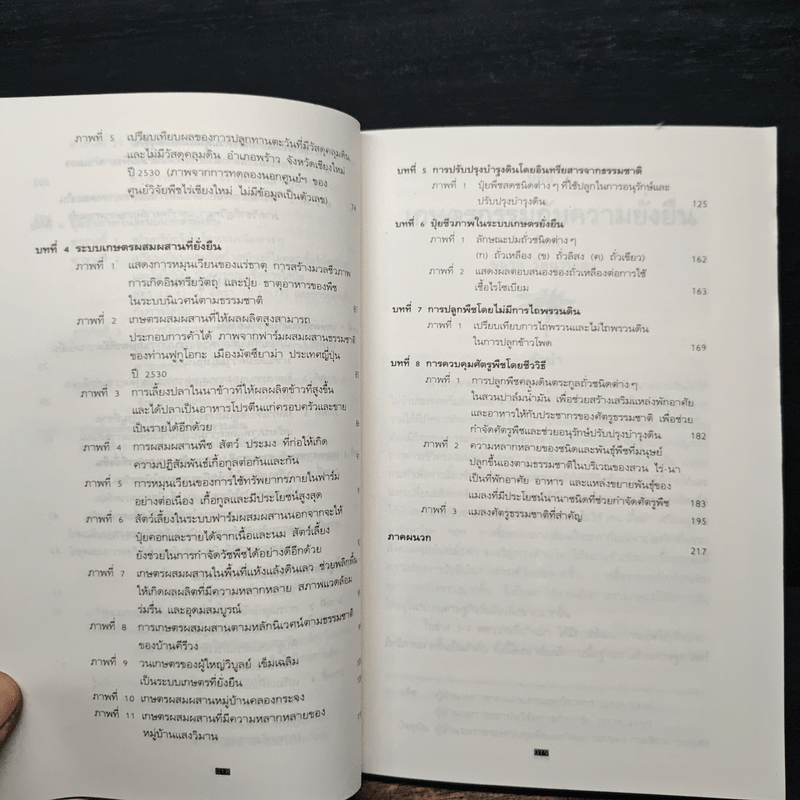 ภาพที่ 5 เปรียบเทียบผลของการปลูกทานตะวันที่มีวัสดุคลุมดิน
และไม่มีวัสดุคลุมดิน อำเภอพร้าว จังหวัดเชียงใหม่
ปี 2530 (ภาพจากการทดลองนอกศูนย์ฯ ของ
ศูนย์วิจัยพืชไร่เชียงใหม่ ไม่มีข้อมูลเป็นตัวเลข)
บทที่ 4 ระบบเกษตรผสมผสานที่ยั่งยืน
ภาพที่ 1 แสดงการหมุนเวียนของแร่ธาตุ การสร้างมวลชีวภาพ
การเกิดอินทรียวัตถุ และปุ๋ย ธาตุอาหารของพืช
ในระบบนิเวศน์ตามธรรมชาติ
ภาพที่ 2 เกษตรผสมผสานที่ให้ผลผลิตสูงสามารถ
ประกอบการค้าได้ ภาพจากฟาร์มผสมผสานธรรมชาติ
ของท่านฟูกูโอกะ เมืองมัตซึยาม่า ประเทศญี่ปุ่น
ปี 2530
ภาพที่ 3 การเลี้ยงปลาในนาข้าวที่ให้ผลผลิตข้าวที่สูงขึ้น
และได้ปลาเป็นอาหารโปรตีนแก่ครอบครัวและขาย
เป็นรายได้อีกด้วย
ภาพที่ 4 การผสมผสานพืช สัตว์ ประมง ที่ก่อให้เกิด
ความปฏิสัมพันธ์เกื้อกูลต่อกันและกัน
ภาพที่ 5 การหมุนเวียนของการใช้ทรัพยากรภายในฟาร์ม
อย่างต่อเนื่อง เกื้อกูลและมีประโยชน์สูงสุด
ภาพที่ 6 สัตว์เลี้ยงในระบบฟาร์มผสมผสานนอกจากจะให้
ปุ๋ยคอกและรายได้จากเนื้อและนม สัตว์เลี้ยง
ยังช่วยในการกำจัดวัชพืชได้อย่างดีอีกด้วย
ภาพที่ 7 เกษตรผสมผสานในพื้นที่แห้งแล้งดินเลว ช่วยพลิกฟื้น
ให้เกิดผลผลิตที่มีความหลากหลาย สภาพแวดล้อม
ร่มรื่น และอุดมสมบูรณ์
ภาพที่ 8 การเกษตรผสมผสานตามหลักนิเวศน์ตามธรรมชาติ
ของบ้านคีรีวง
ภาพที่ 9 วนเกษตรของผู้ใหญ่วิบูลย์ เข็มเฉลิม
เป็นระบบเกษตรที่ยั่งยืน
ภาพที่ 10 เกษตรผสมผสานหมู่บ้านคลองกระจง
ภาพที่ 11 เกษตรผสมผสานที่มีความหลากหลายของ
หมู่บ้านแสงวิมาน
บทที่ 5 การปรับปรุงบำรุงดินโดยอินทรียสารจากธรรมชาติ
ภาพที่ 1 ปุ๋ยพืชสดชนิดต่างๆ ที่ใช้ปลูกในการอนุรักษ์และ
ปรับปรุงบำรุงดิน 125
บทที่ 6 ปุ๋ยชีวภาพในระบบเกษตรยั่งยืน
ภาพที่ 1 ลักษณะปมถั่วชนิดต่างๆ
(ก) ถั่วเหลือง (ข) ถั่วลิสง (ค) ถั่วเขียว) 162
ภาพที่ 2 แสดงผลตอบสนองของถั่วเหลืองต่อการใช้
เชื้อไรโซเบียม 163
บทที่ 7 การปลูกพืชโดยไม่มีการไถพรวนดิน
ภาพที่ 1 เปรียบเทียบการไถพรวนและไม่ไถพรวนดิน
ในการปลูกข้าวโพด 169
บทที่ 8 การควบคุมศัตรูพืชโดยชีววิธี
ภาพที่ 1 การปลูกพืชคลุมดินตระกูลถั่วชนิดต่างๆ
ในสวนปาล์มน้ำมัน เพื่อช่วยสร้างเสริมแหล่งพักอาศัย
และอาหารให้กับประชากรของศัตรูธรรมชาติ เพื่อช่วย
กำจัดศัตรูพืชและช่วยอนุรักษ์ปรับปรุงบำรุงดิน 182
ภาพที่ 2 ความหลากหลายของชนิดและพันธุ์พืชที่มนุษย์
ปลูกขึ้นเองตามธรรมชาติในบริเวณของสวน ไร่-นา
เป็นที่พักอาศัย อาหาร และแหล่งขยายพันธุ์ของ
แมลงที่มีประโยชน์นานาชนิดที่ช่วยกำจัดศัตรูพืช 183
ภาพที่ 3 แมลงศัตรูธรรมชาติที่สำคัญ 195
ภาคผนวก 217